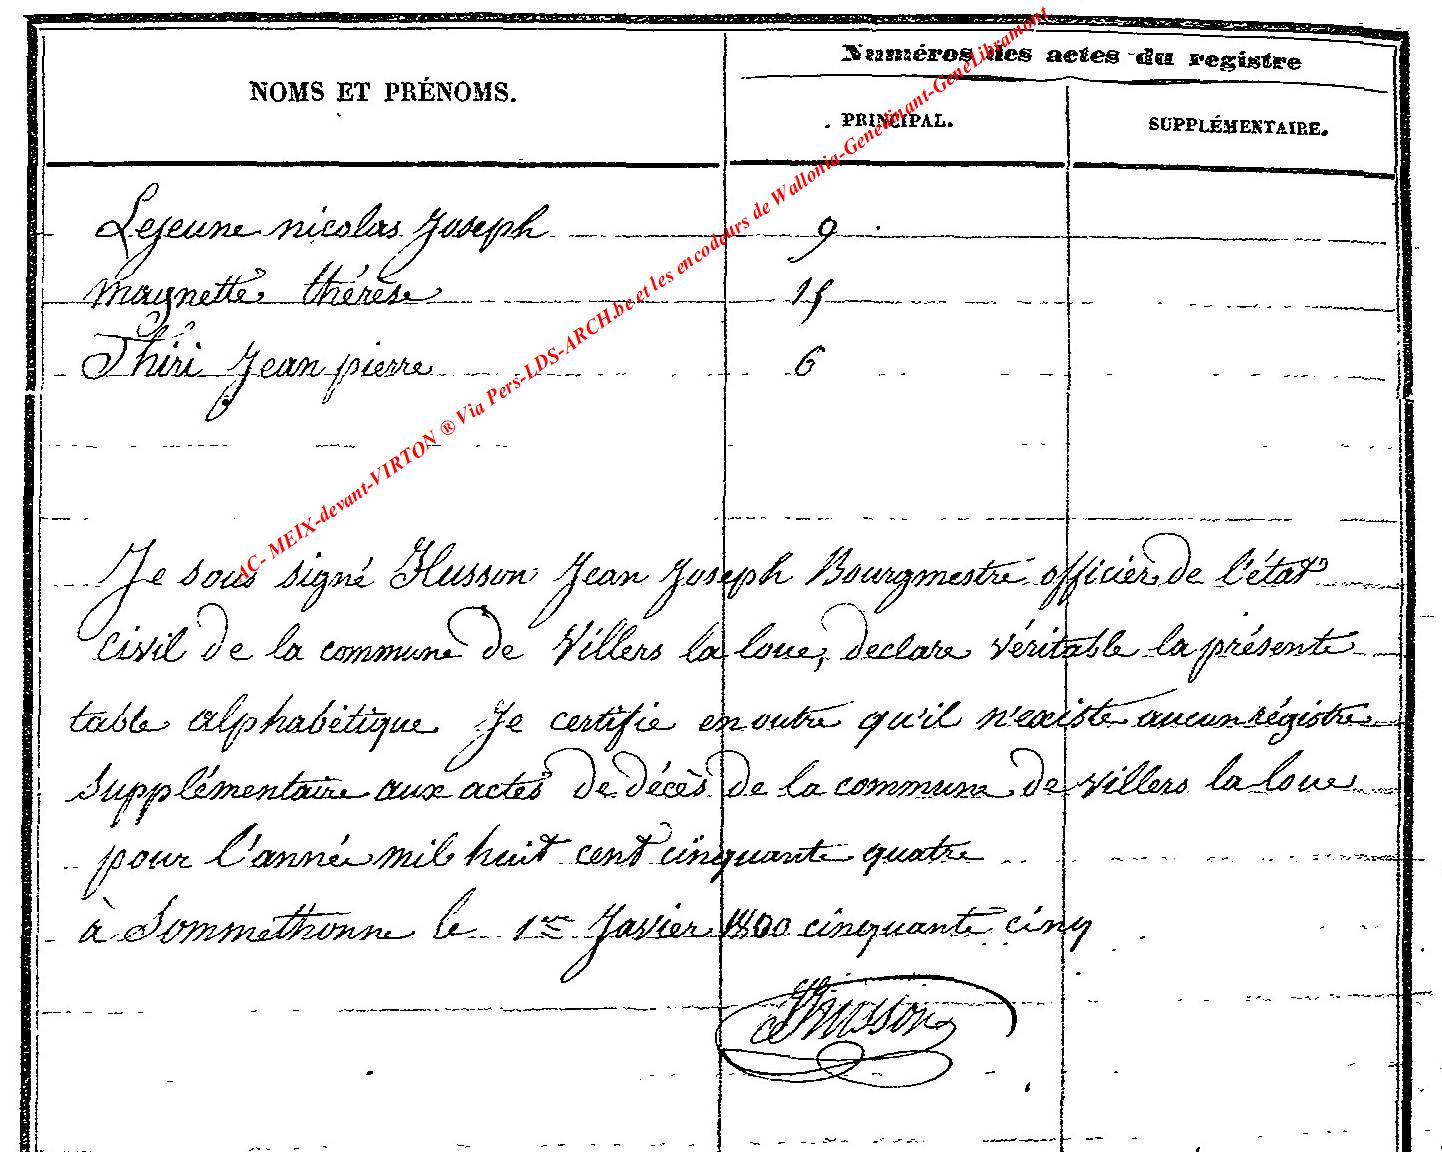 Numéros des actes du registre
NOMS ET PRÉNOMS.
PRINCIPAL.
SUPPLÉMENTAIRE.
Lejeune nicolas Joseph 9
Magnette thérèse 15
Thiri Jean pierre 6
AC- MEIX-devant-VIRTON ® Via Pers-LDS-ARCH.be et les encodeurs de Wallonia-Genedinant-GeneLibramont
Je sous signé Husson Jean Joseph Bourgmestre officier de l'état
civil de la commune de Villers la loue, declare véritable la présente
table alphabétique Je certifie en outre qu'il n'existe aucun régistre
Supplémentaire aux actes de décès de la commune de Villers la loue
pour l'année mil huit cent cinquante quatre
à Sommethonne le 1er Javier 1800 cinquante cinq
JHusson